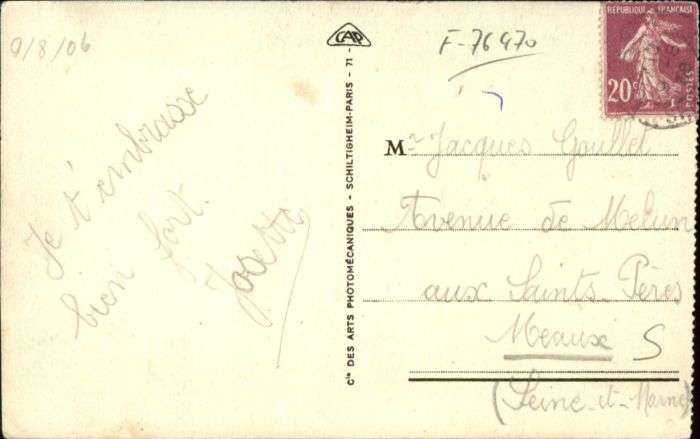 9/8/06
Je t'embrasse
bien fort.
Josette
CAP
Cie DES ARTS PHOTOMÉCANIQUES - SCHILTIGHEIM-PARIS - 71 -
F-76470
RÉPUBLIQUE FRANÇAISE
20c
POSTES
Mr Jacques Goullet
Avenue de Melun
aux Saints-Pères
Meaux S
(Seine-et-Marne)